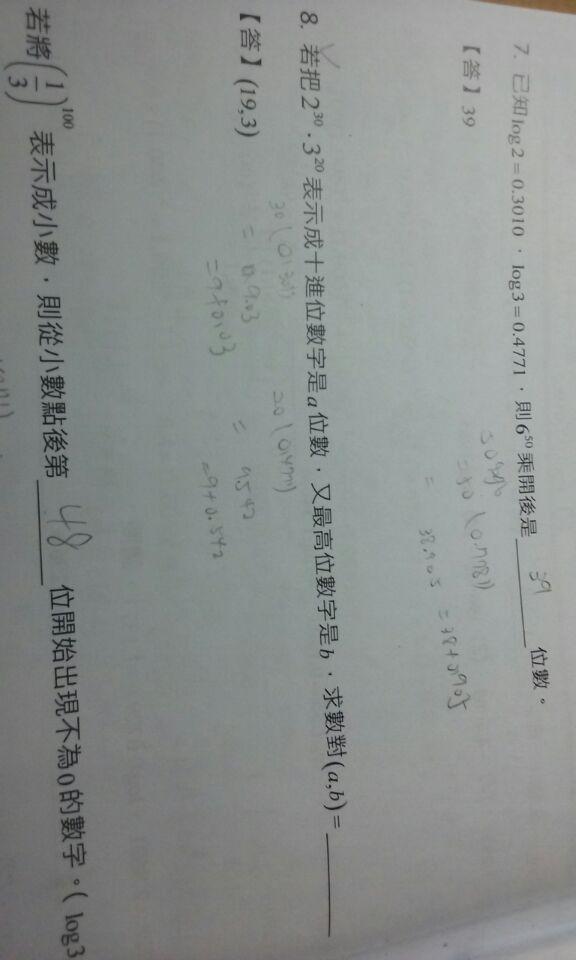 7. 已知log2=0.3010，log3=0.4771，則6^50乘開後是 39 位數。
【答】39
50log6
=50(0.7781)
= 38.905 =38+0.905
8. 若把2^30·3^20表示成十進位數字是a位數，又最高位數字是b，求數對(a,b)=
【答】(19,3)
30(0.301) 20(0.4771)
= 0.9.03 = 9.542
=9+0.03 =9+0.542
若將(1/3)^100 表示成小數，則從小數點後第 48 位開始出現不為0的數字。(log3